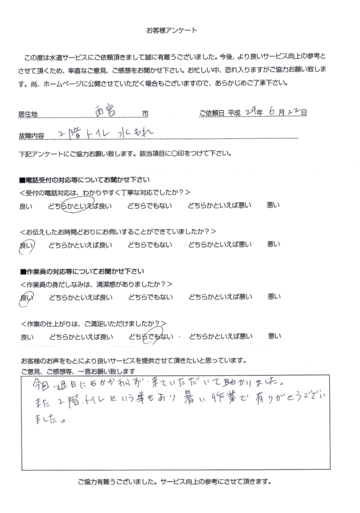 お客様アンケート
この度は水道サービスにご依頼頂きまして誠に有難うございました。今後、より良いサービス向上の参考と
させて頂くため、率直なご意見、ご感想をお聞かせ下さい。お忙しい中、恐れ入りますがご協力お願い致しま
す。尚、ホームページに公開させていただく場合もございますので、あらかじめご了承下さい。
居住地 西宮 市 ご依頼日 平成 29年 6月 22日
故障内容 2階トイレ 水もれ
下記アンケートにご協力お願い致します。該当項目に〇印をつけて下さい。
■電話受付の対応等についてお聞かせ下さい
<受付の電話対応は、わかりやすく丁寧な対応でしたか?>
良い どちらかといえば良い どちらでもない どちらかといえば悪い 悪い
<お伝えしたお時間どおりにお伺いすることができていましたか?>
良い どちらかといえば良い どちらでもない どちらかといえば悪い 悪い
■作業員の対応等についてお聞かせ下さい
<作業員の身だしなみは、清潔感がありましたか?>
良い どちらかといえば良い どちらでもない どちらかといえば悪い 悪い
<作業の仕上がりは、ご満足いただけましたか?>
良い どちらかといえば良い どちらでもない ・ どちらかといえば悪い 悪い
お客様のお声をもとにより良いサービスを提供させて頂きたいと思っています。
ご意見、ご感想等、一言お願い致します
今回、週日にもかかわらず、来ていただいて助かりました。
また 2階、トイレという事もあり 暑い 作業で 有りがとうござい
ました。
ご協力有難うございました。サービス向上の参考にさせて頂きます。